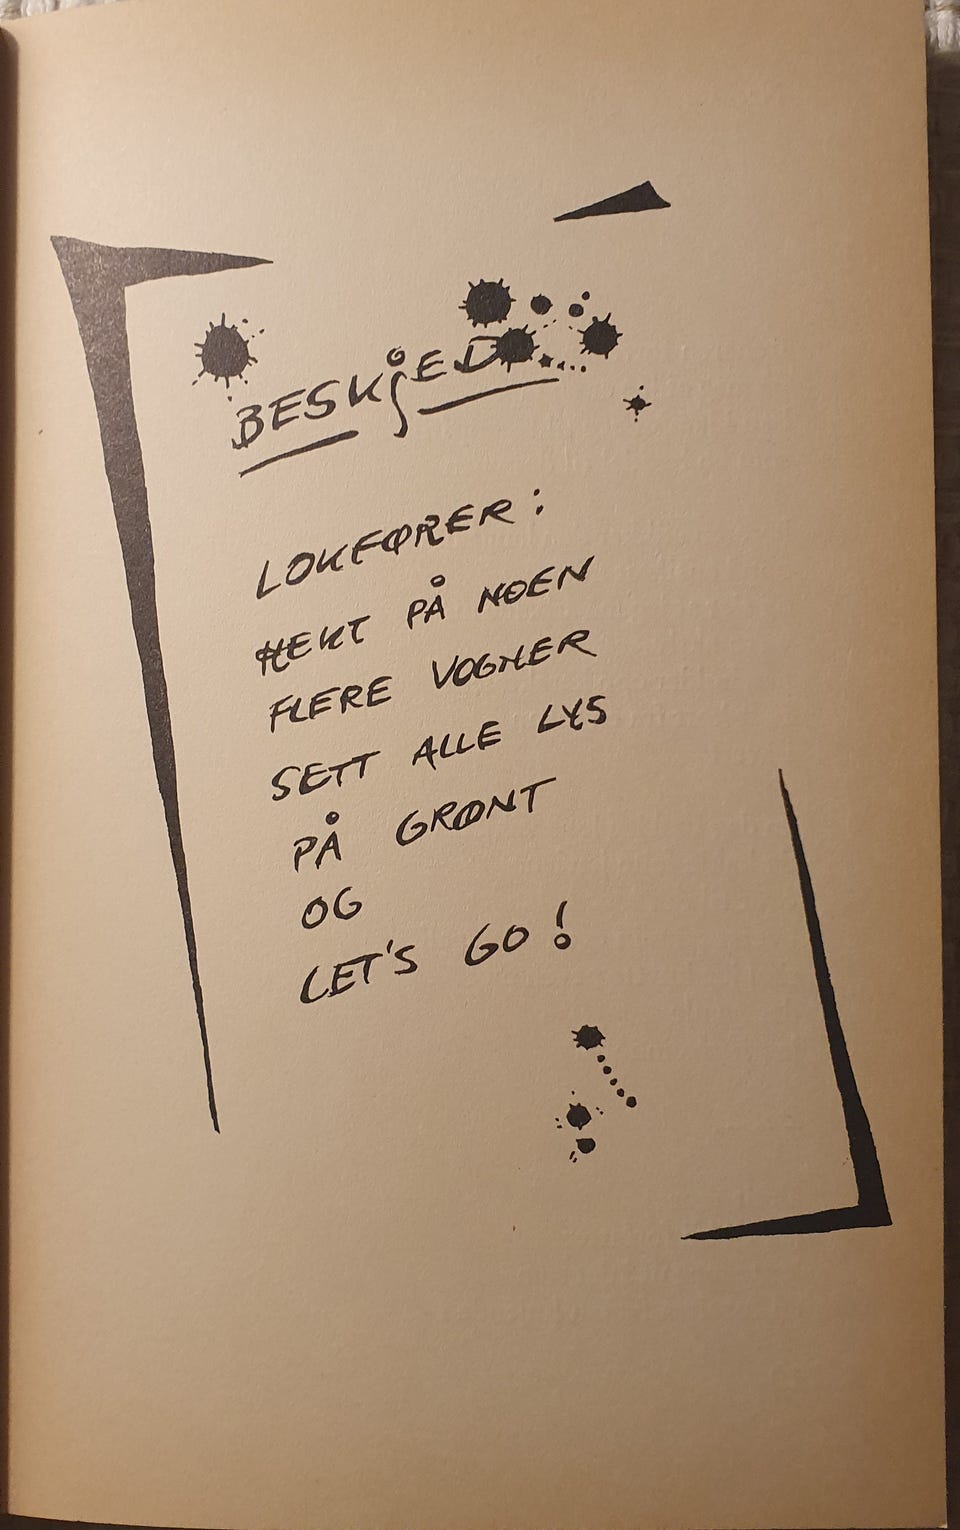 BESKjED
LOKFØRER:
HEKT PÅ NOEN
FLERE VOGNER
SETT ALLE LYS
PÅ GRØNT
OG
LET'S GO!